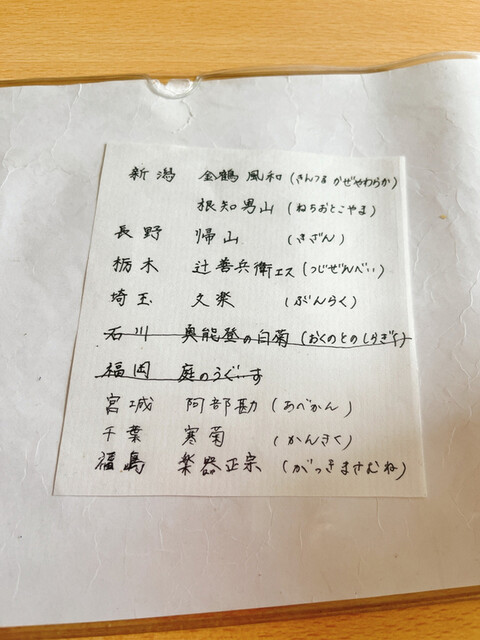 新潟 金鶴 風和 (きんつる かぜやわらか)
根知男山 (ねちおとこやま)
長野 帰山 (きざん)
栃木 辻善兵衛エス (つじぜんべい)
埼玉 文楽 (ぶんらく)
石川 奥能登の白菊 (おくのとのしらぎく)
福岡 庭のうぐいす
宮城 阿部勘 (あべかん)
千葉 寒菊 (かんきく)
福島 楽器正宗 (がっきまさむね)